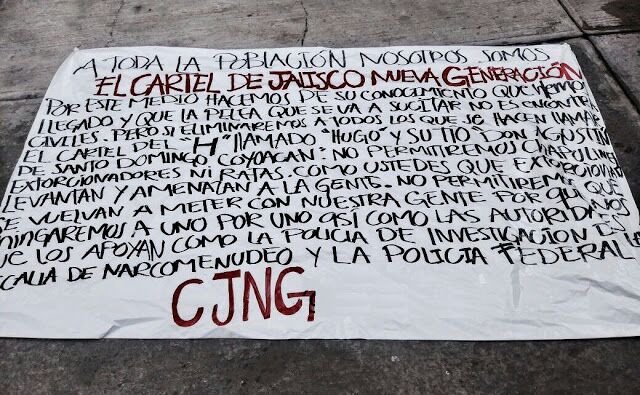 A TODA LA POBLACIÓN NOSOTROS SOMOS
EL CARTEL DE JALISCO NUEVA GENERACIÓN
POR ESTE MEDIO HACEMOS DE SU CONOCIMIENTO QUE HEMOS
LLEGADO Y QUE LA PELEA QUE SE VA A SUCITAR NO ES ENCONTRA
CIVILES. PERO SI ELIMINAREMOS A TODOS LOS QUE SE HACEN LLAMAR
EL CARTEL DEL "H" LLAMADO "HUGO" Y SU TIO "DON AGUSTIN
DE SANTO DOMINGO, COYOACAN: NO PERMITIREMOS CHAPULINES
EXTORCIONADORES NI RATAS. COMO USTEDES QUE EXTORCIONAN
LEVANTAN Y AMENAZAN A LA GENTE. NO PERMITIREMOS QUE
SE VUELVAN A METER CON NUESTRA GENTE POR QUE
UNO POR UNO ASÍ COMO LAS AUTORIDADES
QUE LOS APOYAN COMO LA POLICIA DE INVESTIGACION DE
DE NARCOMENUDEO Y LA POLICIA FEDERAL
CJNG